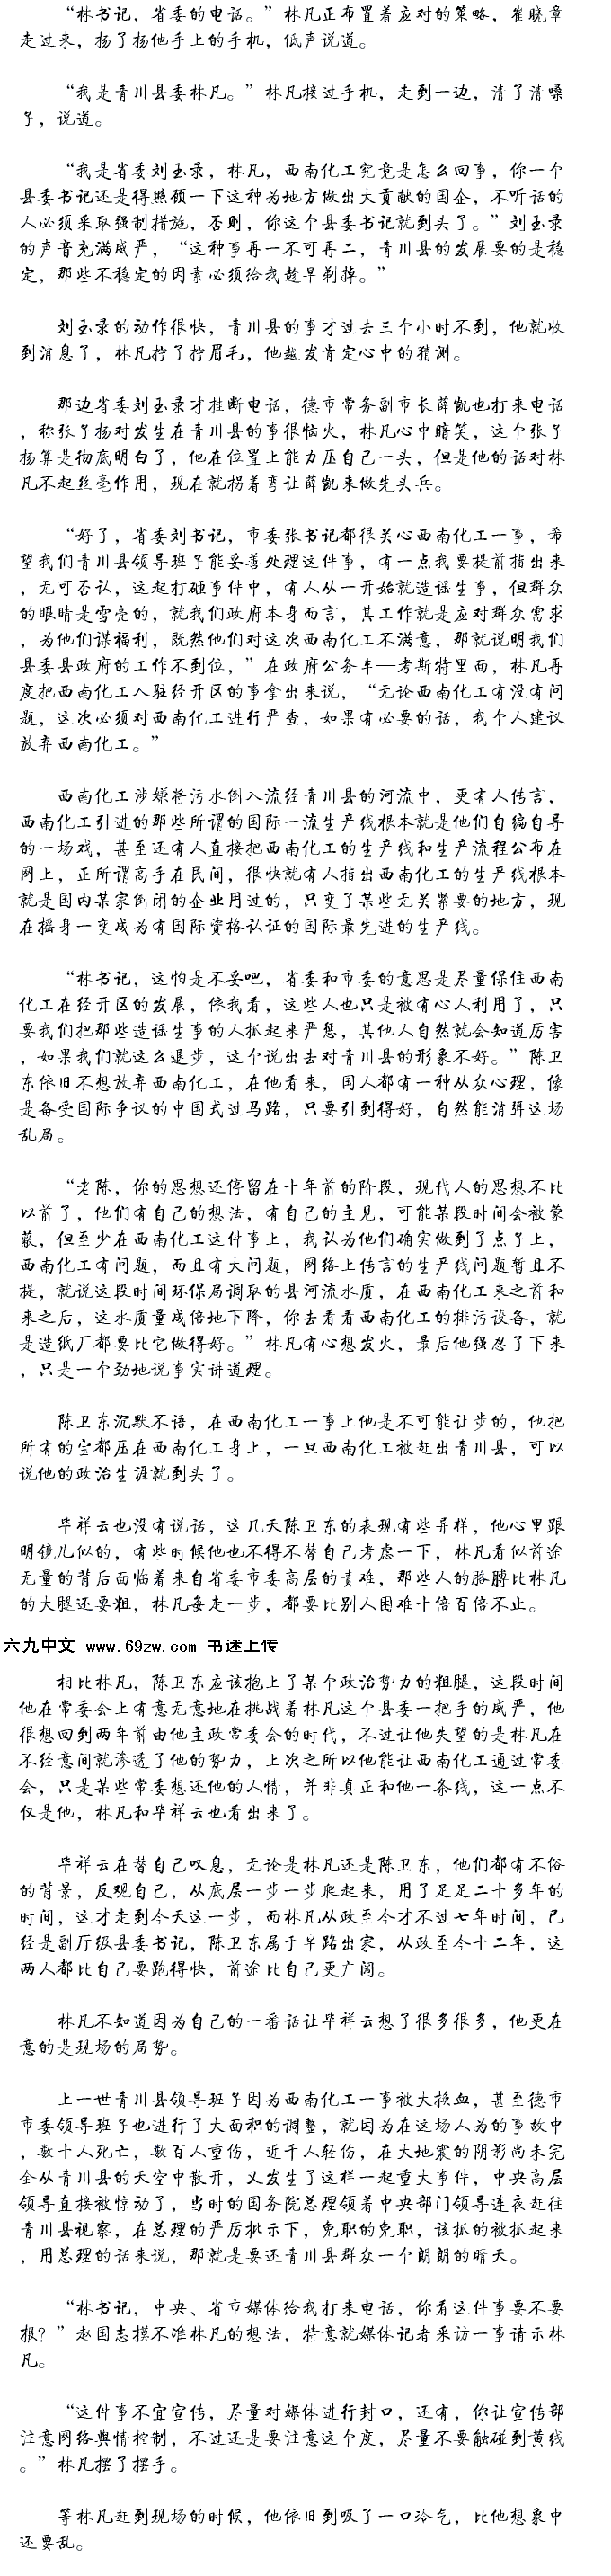 “林书记，省委的电话。”林凡正布置着应对的策略，崔晓章
走过来，扬了扬他手上的手机，低声说道。
“我是青川县委林凡。”林凡接过手机，走到一边，清了清嗓
子，说道。
“我是省委刘玉录，林凡，西南化工究竟是怎么回事，你一个
县委书记还是得照顾一下这种为地方做出大贡献的国企，不听话的
人必须采取强制措施，否则，你这个县委书记就到头了。”刘玉录
的声音充满威严，“这种事再一不可再二，青川县的发展要的是稳
定，那些不稳定的因素必须给我趁早剃掉。”
刘玉录的动作很快，青川县的事才过去三个小时不到，他就收
到消息了，林凡拧了拧眉毛，他越发肯定心中的猜测。
那边省委刘玉录才挂断电话，德市常务副市长薛凯也打来电话
，称张子扬对发生在青川县的事很恼火，林凡心中暗笑，这个张子
扬算是彻底明白了，他在位置上能力压自己一头，但是他的话对林
凡不起丝毫作用，现在就拐着弯让薛凯来做先头兵。
“好了，省委刘书记，市委张书记都很关心西南化工一事，希
望我们青川县领导班子能妥善处理这件事，有一点我要提前指出来
，无可否认，这起打砸事件中，有人从一开始就造谣生事，但群众
的眼睛是雪亮的，就我们政府本身而言，其工作就是应对群众需求
，为他们谋福利，既然他们对这次西南化工不满意，那就说明我们
县委县政府的工作不到位，”在政府公务车—考斯特里面，林凡再
度把西南化工入驻经开区的事拿出来说，“无论西南化工有没有问
题，这次必须对西南化工进行严查，如果有必要的话，我个人建议
放弃西南化工。”
西南化工涉嫌将污水倒入流经青川县的河流中，更有人传言，
西南化工引进的那些所谓的国际一流生产线根本就是他们自编自导
的一场戏，甚至还有人直接把西南化工的生产线和生产流程公布在
网上，正所谓高手在民间，很快就有人指出西南化工的生产线根本
就是国内某家倒闭的企业用过的，只变了某些无关紧要的地方，现
在摇身一变成为有国际资格认证的国际最先进的生产线。
“林书记，这怕是不妥吧，省委和市委的意思是尽量保住西南
化工在经开区的发展，依我看，这些人也只是被有心人利用了，只
要我们把那些造谣生事的人抓起来严惩，其他人自然就会知道厉害
，如果我们就这么退步，这个说出去对青川县的形象不好。”陈卫
东依旧不想放弃西南化工，在他看来，国人都有一种从众心理，像
是备受国际争议的中国式过马路，只要引到得好，自然能消弭这场
乱局。
“老陈，你的思想还停留在十年前的阶段，现代人的思想不比
以前了，他们有自己的想法，有自己的主见，可能某段时间会被蒙
蔽，但至少在西南化工这件事上，我认为他们确实做到了点子上，
西南化工有问题，而且有大问题，网络上传言的生产线问题暂且不
提，就说这段时间环保局调取的县河流水质，在西南化工来之前和
来之后，这水质量成倍地下降，你去看看西南化工的排污设备，就
是造纸厂都要比它做得好。”林凡有心想发火，最后他强忍了下来
，只是一个劲地说事实讲道理。
陈卫东沉默不语，在西南化工一事上他是不可能让步的，他把
所有的宝都压在西南化工身上，一旦西南化工被赶出青川县，可以
说他的政治生涯就到头了。
毕祥云也没有说话，这几天陈卫东的表现有些异样，他心里跟
明镜儿似的，有些时候他也不得不替自己考虑一下，林凡看似前途
无量的背后面临着来自省委市委高层的责难，那些人的胳膊比林凡
的大腿还要粗，林凡每走一步，都要比别人困难十倍百倍不止。
六九中文 www.69zw.com 书迷上传
相比林凡，陈卫东应该抱上了某个政治势力的粗腿，这段时间
他在常委会上有意无意地在挑战着林凡这个县委一把手的威严，他
很想回到两年前由他主政常委会的时代，不过让他失望的是林凡在
不经意间就渗透了他的势力，上次之所以他能让西南化工通过常委
会，只是某些常委想还他的人情，并非真正和他一条线，这一点不
仅是他，林凡和毕祥云也看出来了。
毕祥云在替自己叹息，无论是林凡还是陈卫东，他们都有不俗
的背景，反观自己，从底层一步一步爬起来，用了足足二十多年的
时间，这才走到今天这一步，而林凡从政至今才不过七年时间，已
经是副厅级县委书记，陈卫东属于半路出家，从政至今十二年，这
两人都比自己要跑得快，前途比自己更广阔。
林凡不知道因为自己的一番话让毕祥云想了很多很多，他更在
意的是现场的局势。
上一世青川县领导班子因为西南化工一事被大换血，甚至德市
市委领导班子也进行了大面积的调整，就因为在这场人为的事故中
，数十人死亡，数百人重伤，近千人轻伤，在大地震的阴影尚未完
全从青川县的天空中散开，又发生了这样一起重大事件，中央高层
领导直接被惊动了，当时的国务院总理领着中央部门领导连夜赶往
青川县视察，在总理的严厉批示下，免职的免职，该抓的被抓起来
，用总理的话来说，那就是要还青川县群众一个朗朗的晴天。
“林书记，中央、省市媒体给我打来电话，你看这件事要不要
报？”赵国志摸不准林凡的想法，特意就媒体记者采访一事请示林
凡。
“这件事不宜宣传，尽量对媒体进行封口，还有，你让宣传部
注意网络舆情控制，不过还是要注意这个度，尽量不要触碰到黄线
。”林凡摆了摆手。
等林凡赶到现场的时候，他依旧到吸了一口冷气，比他想象中
还要乱。